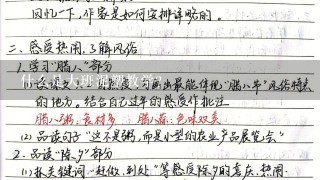 回忆一下,作家是如何安排详略的。
二、感受热闹,了解风俗
1.学习"腊八"部分
画出最能体现"腊八节"风俗特点
的地方。结合自己过年的感受作批注
腊八粥:食材多 腊八蒜:色味双美
(2)品读句子"这不是粥,而是小型的农业产品展览会"
2.品读"除夕"部分
(1)抓关键词、"赶做、到处"等感除夕的喜庆、热闹
什么是大班
教学?